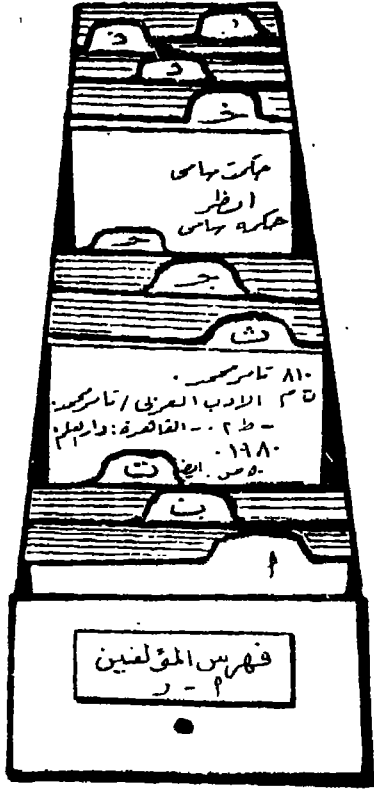 ذ
د
خ
حكمت
انظر
حكمه
ح
ج
ث
٨١٠ تامر محمد .
ت ا م الادب العربى / تامر محمد.
- ط ٢ . - القاهرة : دار العلم
١٩٨٠ .
ص.
ت
ب
أ
فهرس المؤلفين
أ - ر